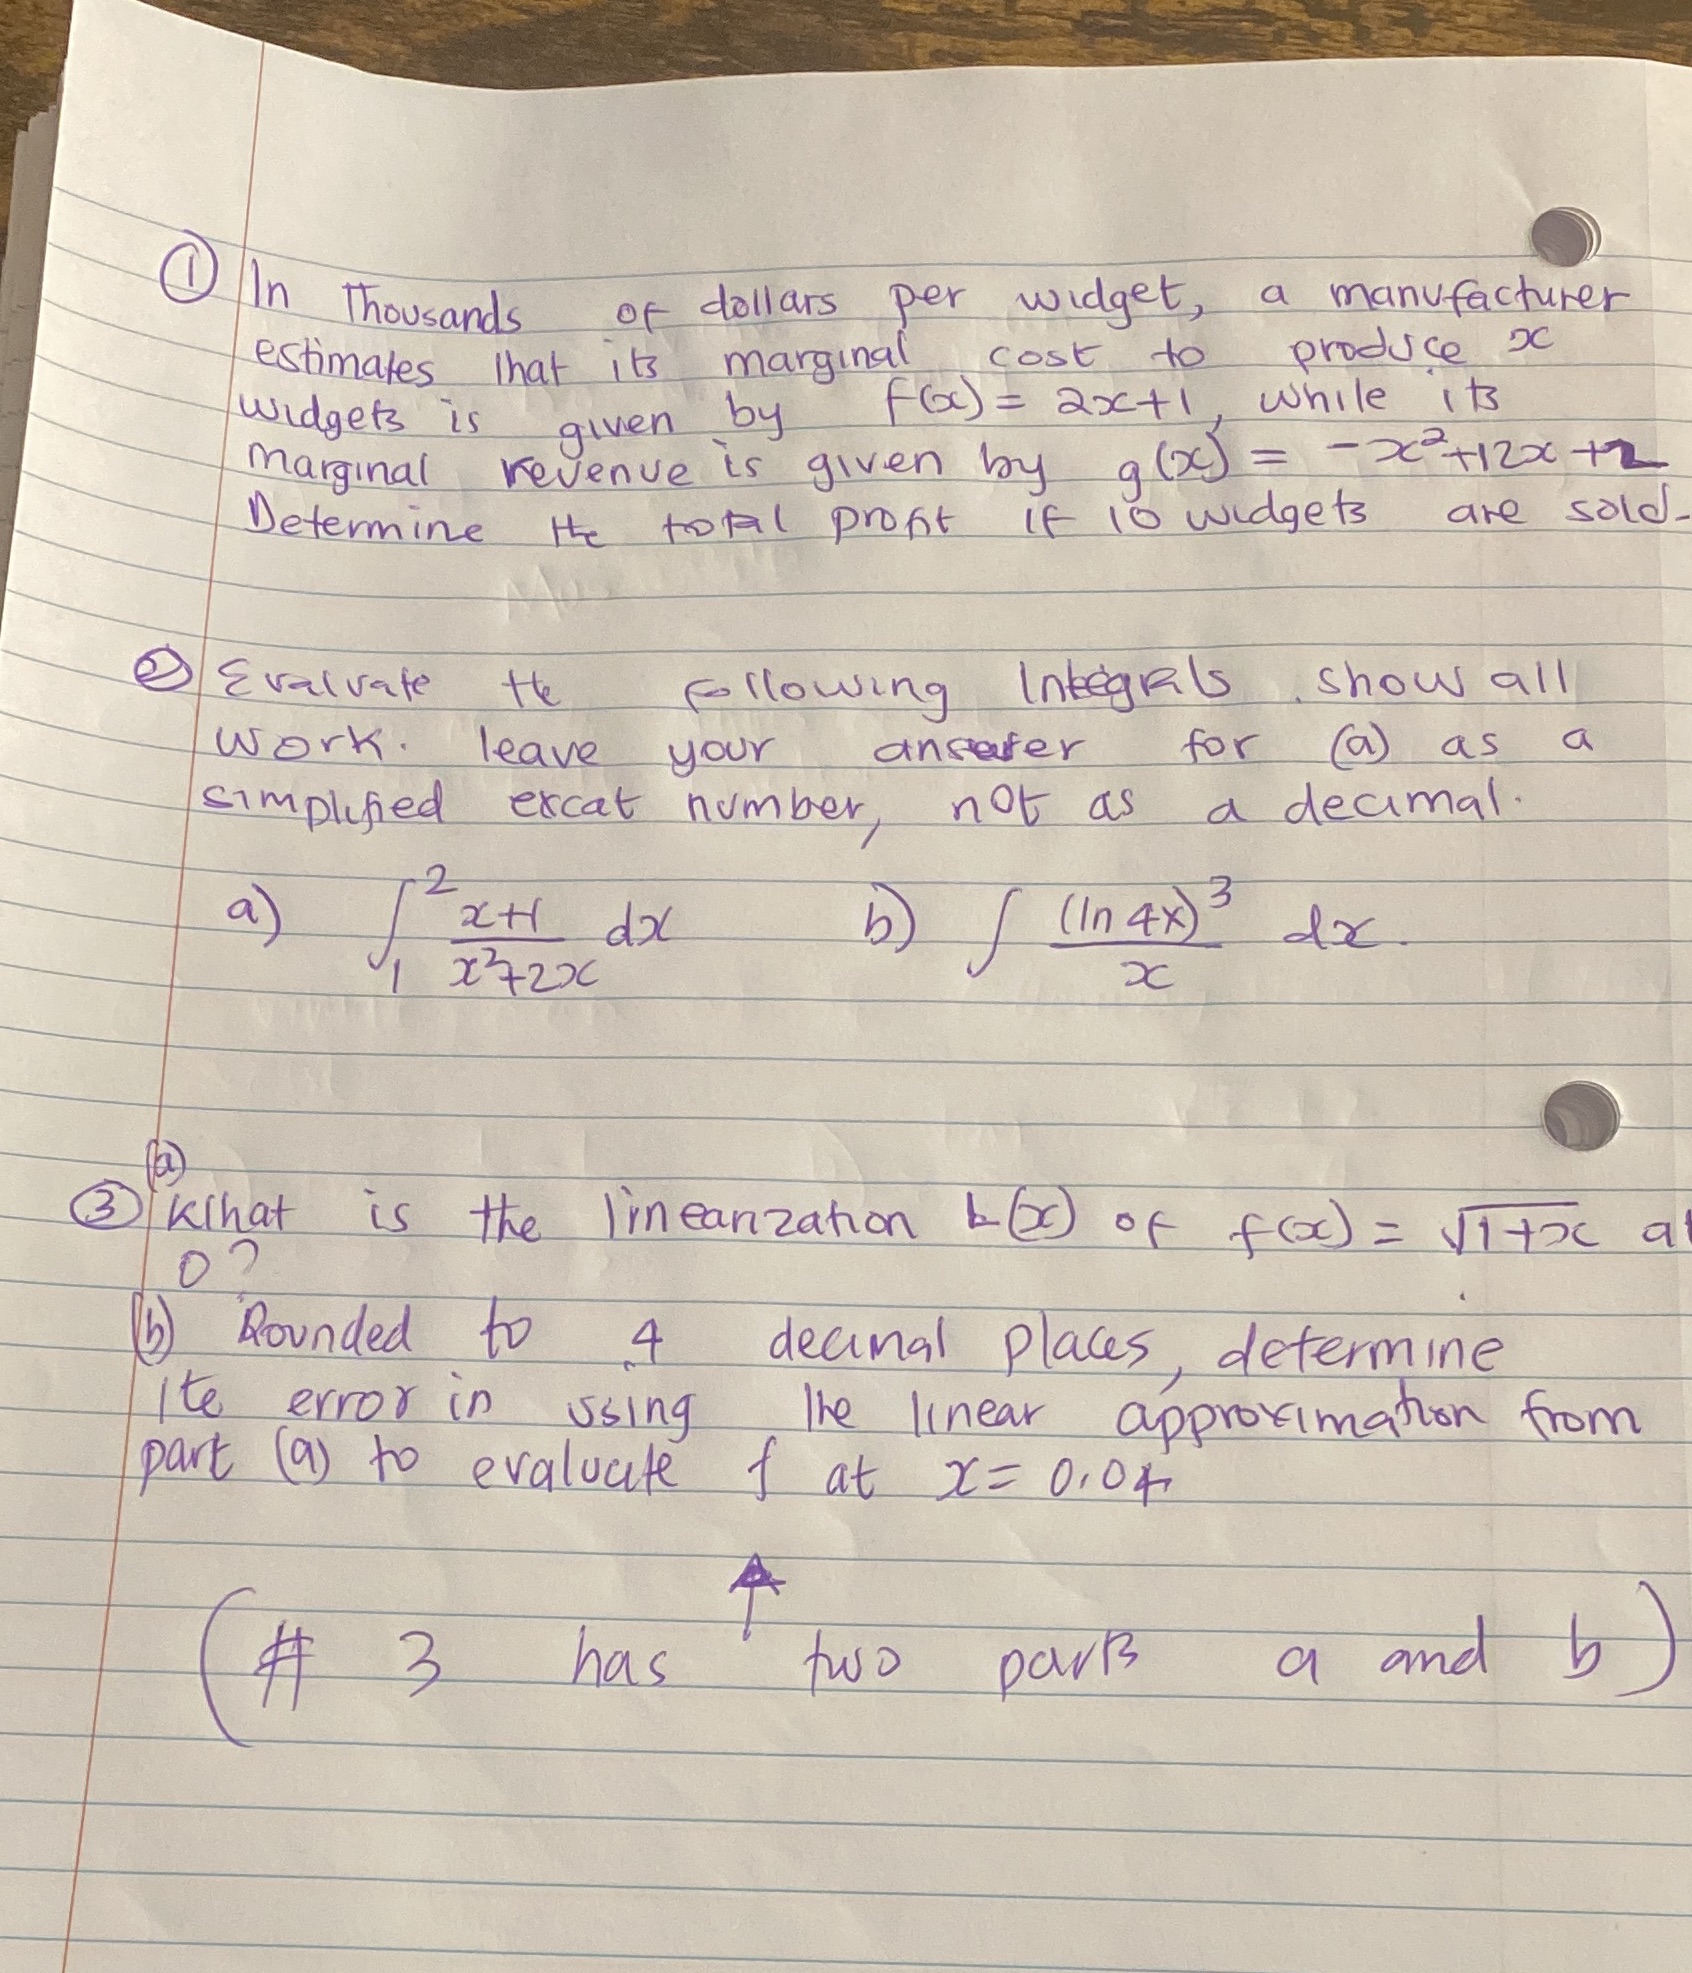 ① In Thousands of dollars per widget, a manufacturer
estimates that its marginal cost to produce x
widgets is given by f(x) = 2x+1, while its
marginal revenue is given by g(x) = -x²+12x+2
Determine the total profit if 10 widgets are sold.
② Evaluate the following Integrals. show all
work. leave your answer for (a) as a
simplified excat number, not as a decimal.
a) ∫₁² (x+1)/(x²+2x) dx b) ∫ (ln 4x)³/x dx.
(a)
③ What is the linearization L(x) of f(x) = √(1+x) at
0?
(b) Rounded to 4 decimal places, determine
the error in using the linear approximation from
part (a) to evaluate f at x = 0.04
(# 3 has two parts a and b)